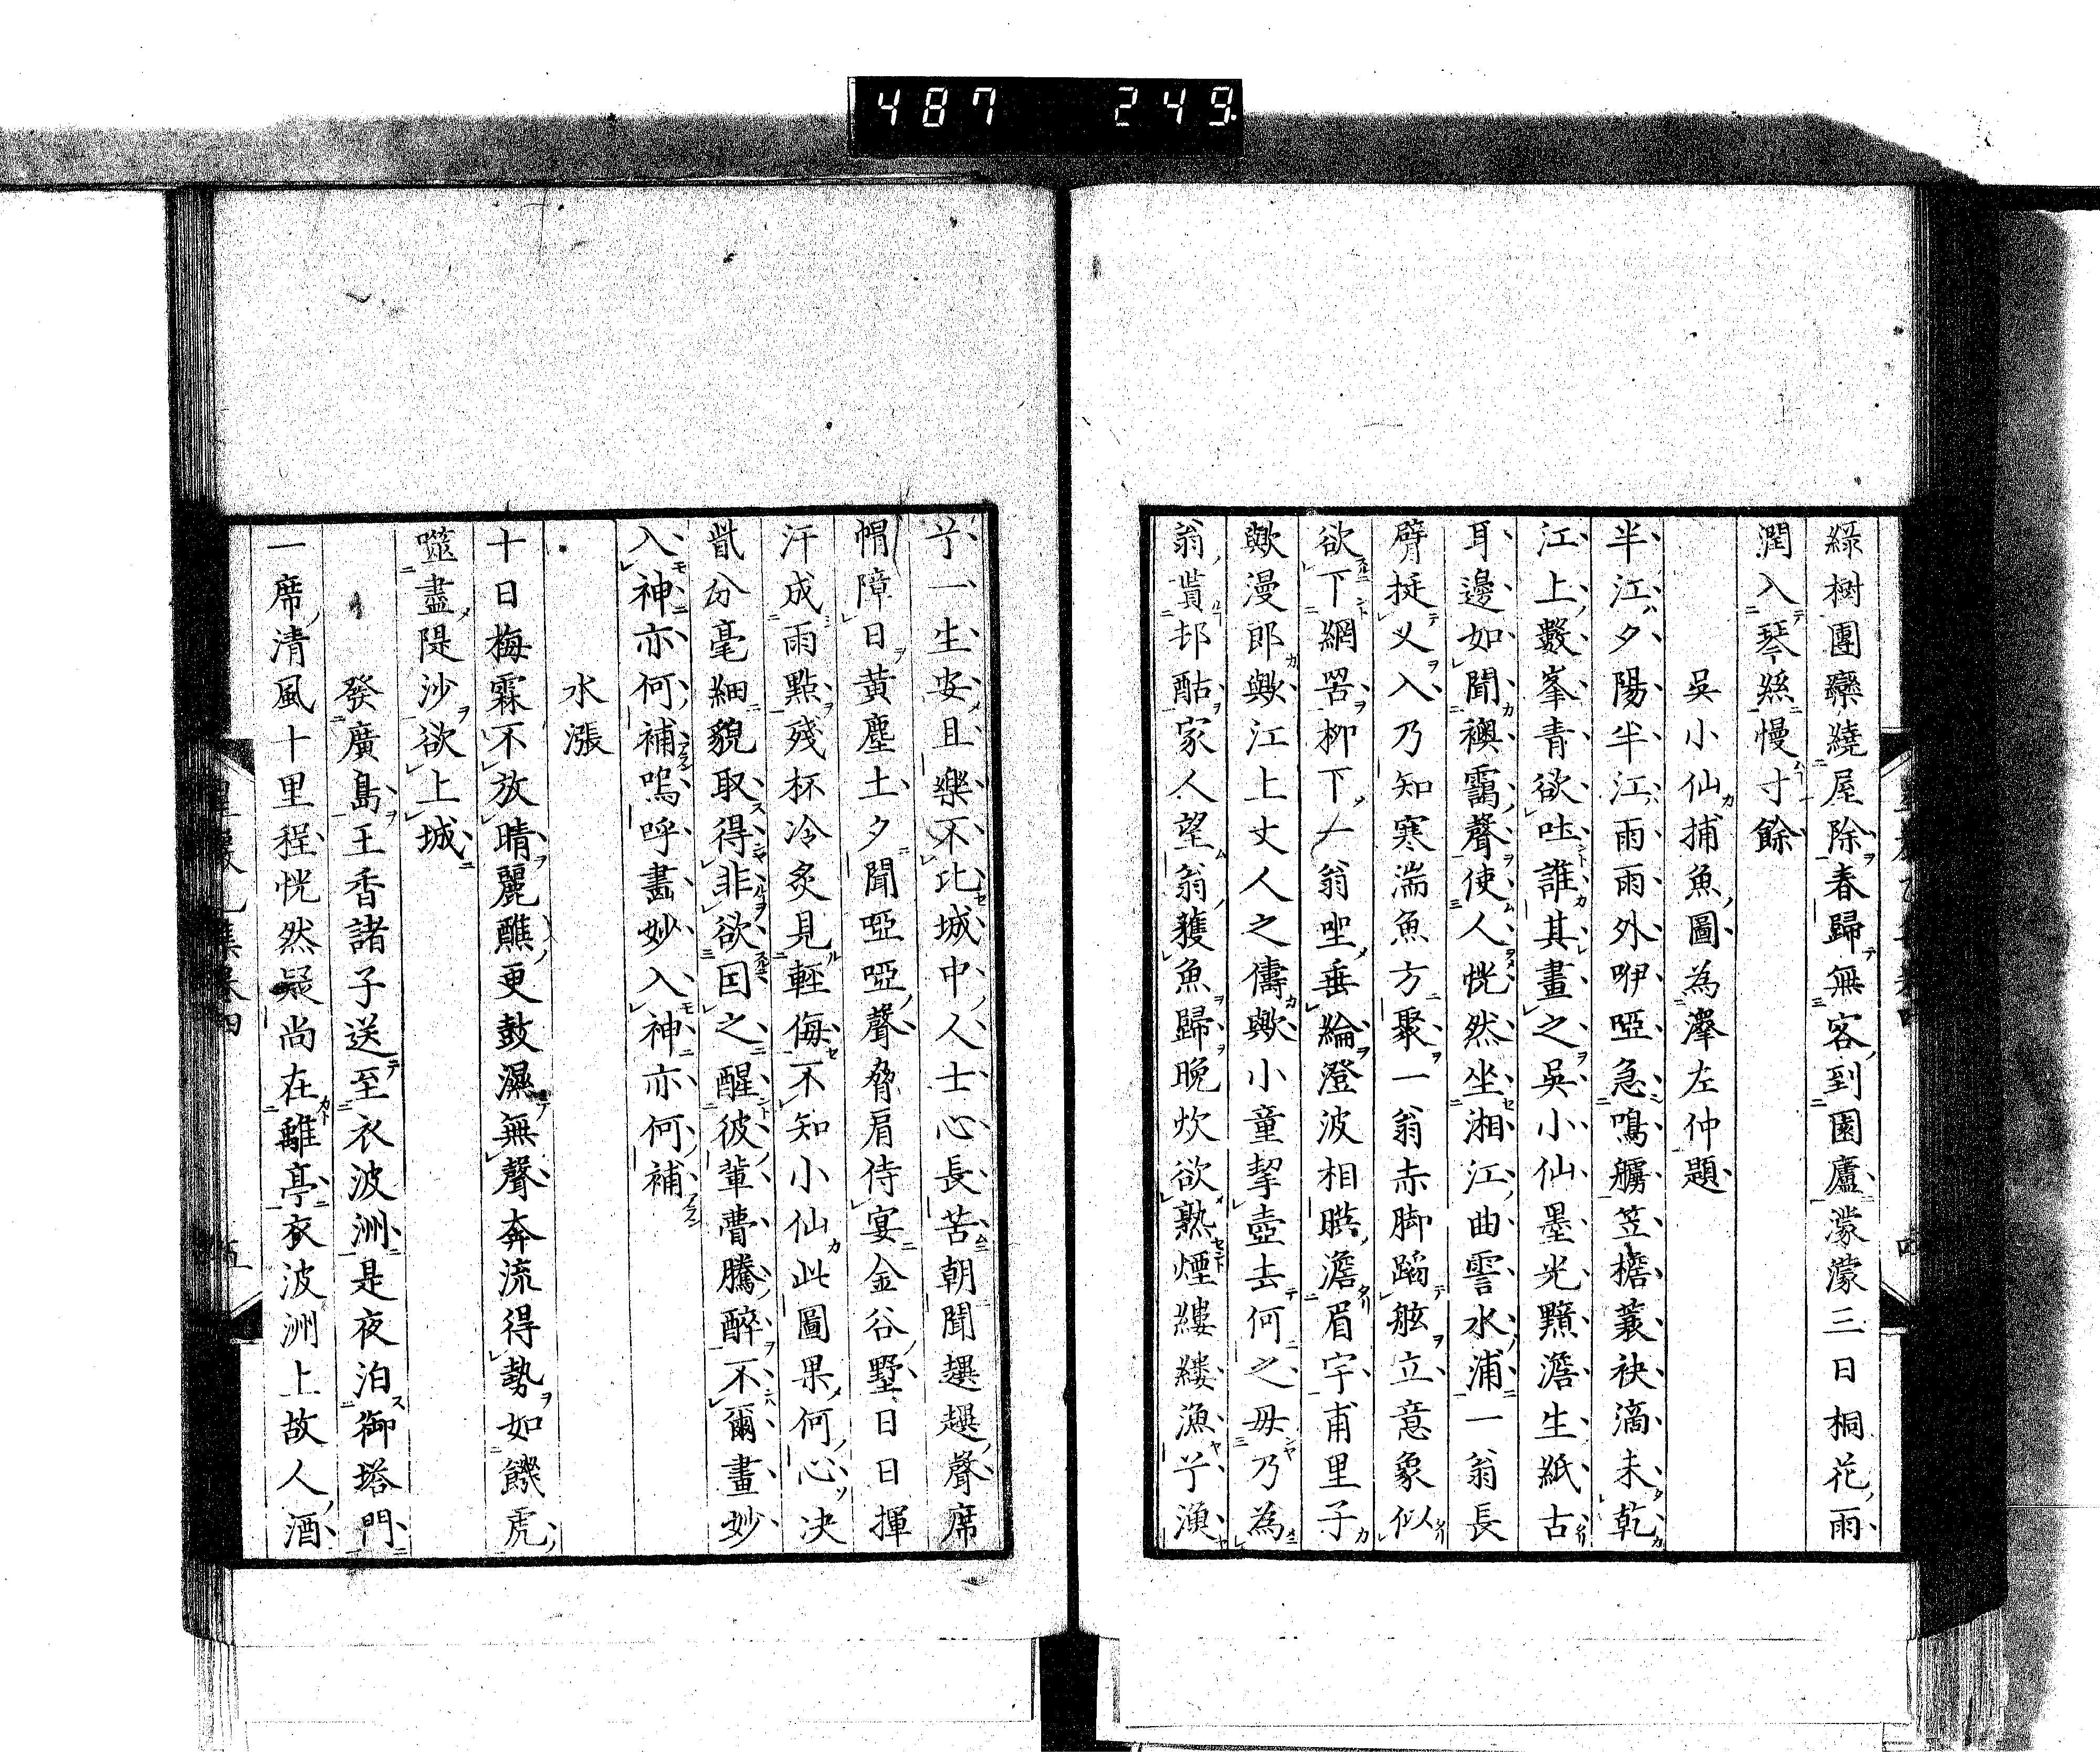 487 249
綠樹團欒繞屋除春歸無客到園廬濛濛三日桐花雨
潤入琴絲慢寸餘
吳小仙捕魚圖為澤左仲題
半江夕陽半江雨雨外咿啞急鳴艣笠檐蓑袂滴未乾
江上數峯青欲吐誰其畫之吳小仙墨光黯澹生紙古
耳邊如聞襖靄聲使人恍然坐湘江曲霅水浦一翁長
臂挺乂入乃知寒湍魚方聚一翁赤脚蹈舷立意象似
欲下網罟柳下一翁坐垂綸澄波相暎澹眉宇甫里子
歟漫郎歟江上丈人之儔歟小童挈壺去何之毋乃為
翁貰邨酤家人望翁獲魚歸晚炊欲熟煙縷縷漁兮漁
兮一生安且樂不比城中人士心長苦朝聞趯趯聲席
帽障日黃塵土夕聞啞啞聲脅肩侍宴金谷墅日日揮
汗成雨點殘杯冷炙見輕侮不知小仙此圖果何心决
眥分毫細貌取得非欲因之醒彼輩瞢騰醉不爾畫妙
入神亦何補嗚呼畫妙入神亦何補
水漲
十日梅霖不放晴麗譙更鼓濕無聲奔流得勢如饑虎
噬盡隄沙欲上城
發廣島王香諸子送至衣波洲是夜泊御塔門
一席清風十里程恍然疑尚在離亭衣波洲上故人酒